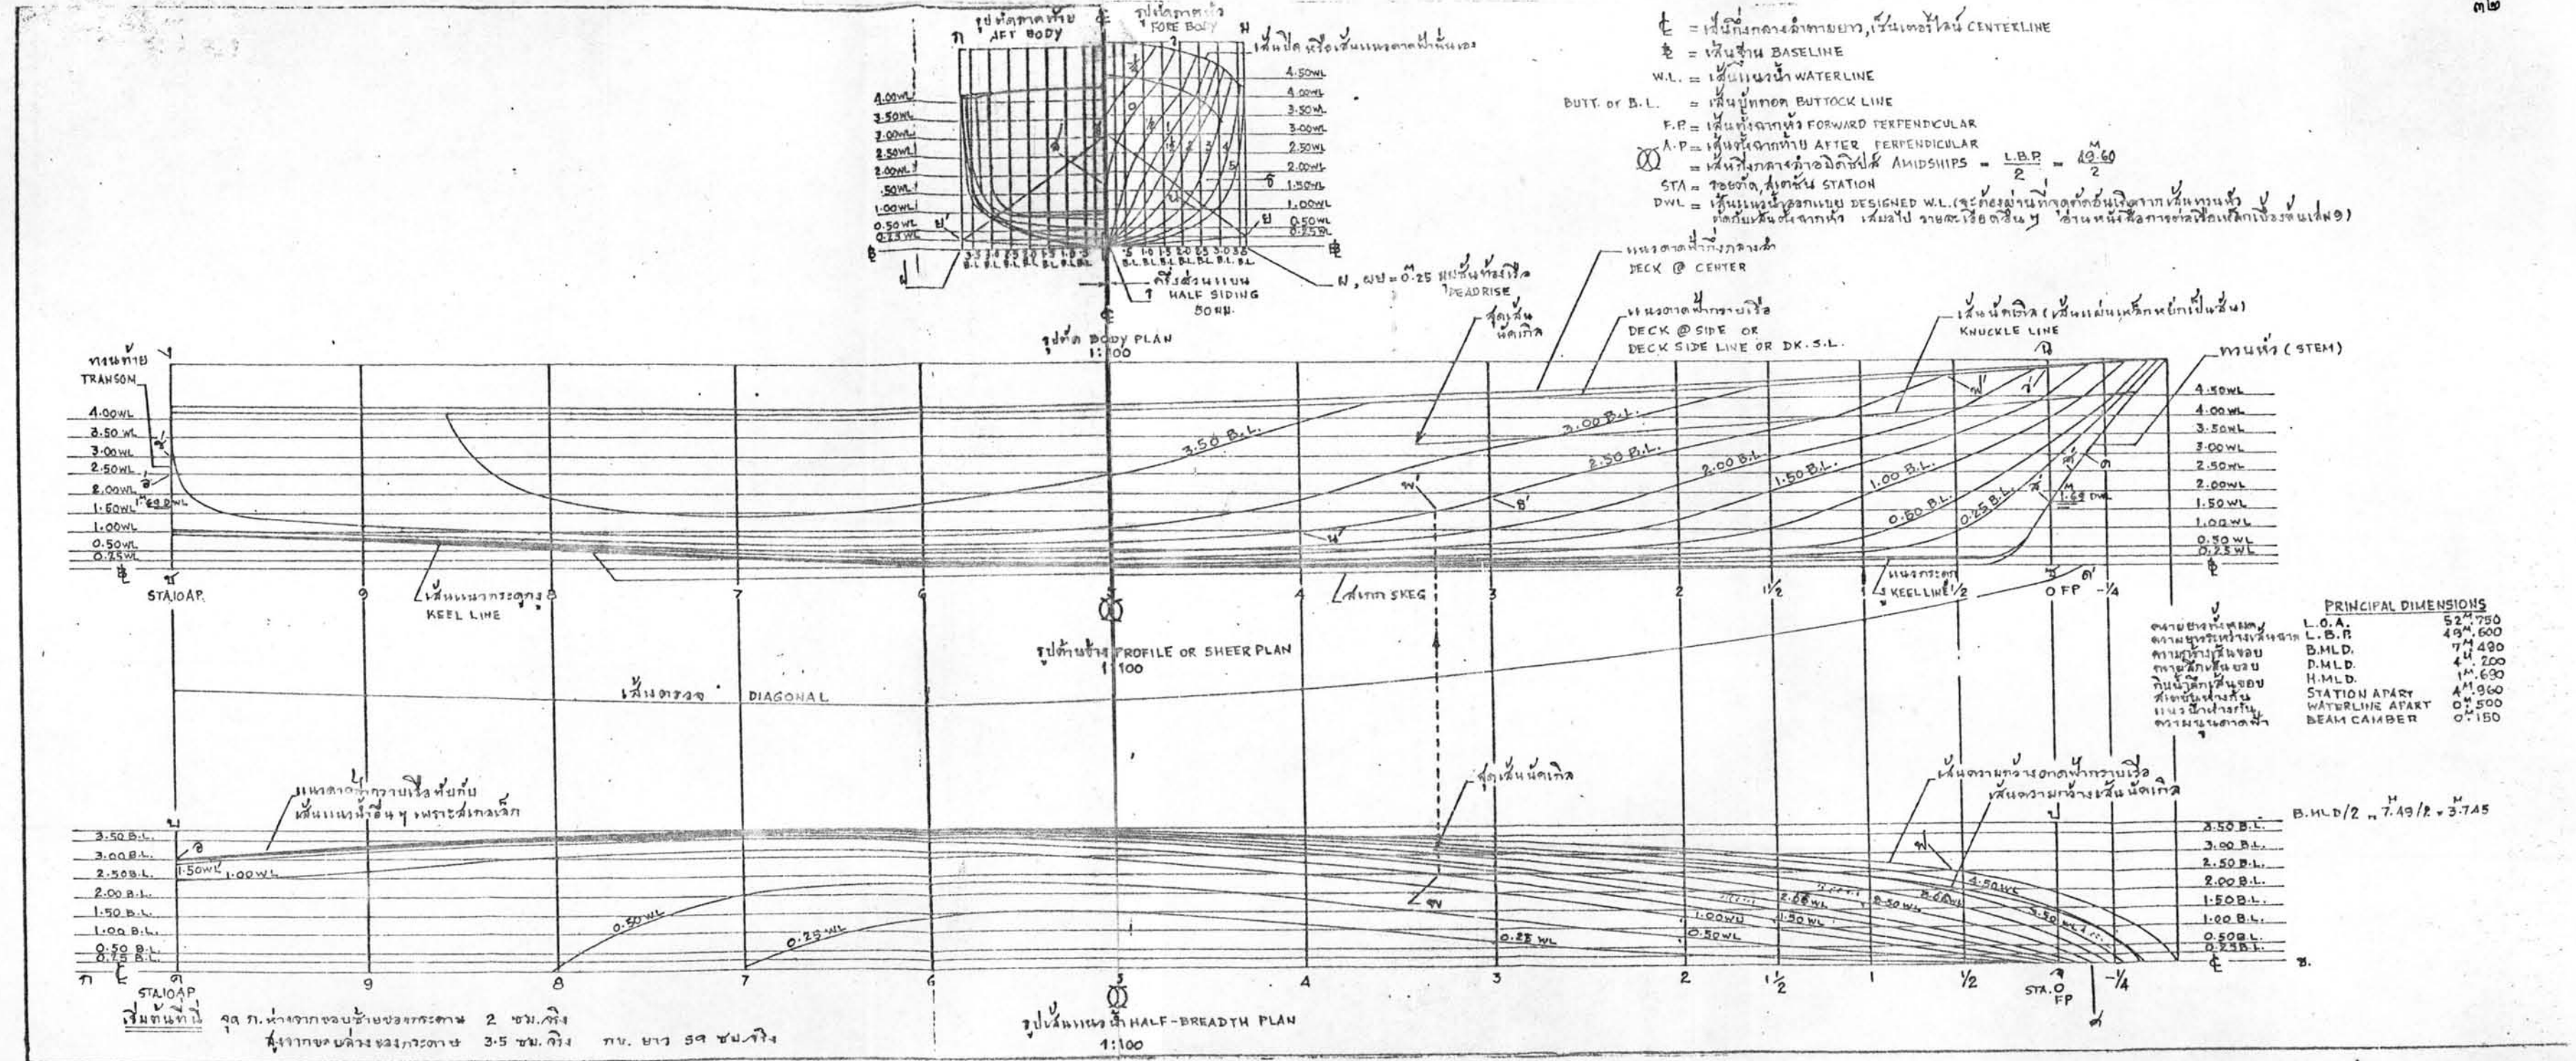 ๓๒
รูปตัดภาคท้าย
AFT BODY
รูปตัดภาคหัว
FORE BODY
ก
ม
4.00WL
3.50WL
3.00WL
2.50WL
2.00WL
.50WL
1.00WL
0.50WL
0.25WL
4.50WL
4.00WL
3.50WL
3.00WL
2.50WL
2.00WL
1.50WL
1.00WL
0.50WL
0.25WL
ครึ่งส่วนแบน
HALF SIDING
50 มม.
ผ, ผย = 0.25 มุมชันท้องเรือ
DEADRISE
รูปตัด BODY PLAN
1:100
℄ = เส้นกึ่งกลางลำตามยาว, เซ็นเตอร์ไลน์ CENTERLINE
= เส้นฐาน BASELINE
W.L. = เส้นแนวน้ำ WATERLINE
BUTT. or B.L. = เส้นบัททอค BUTTOCK LINE
F.P. = เส้นตั้งฉากหัว FORWARD PERPENDICULAR
A.P = เส้นตั้งฉากท้าย AFTER PERPENDICULAR
= เส้นกึ่งกลางลำอมิดชิปส์ AMIDSHIPS = L.B.P. / 2 = 49.60 / 2
STA = รอยตัด, สเตชั่น STATION
DWL = เส้นแนวน้ำออกแบบ DESIGNED W.L.
แนวดาดฟ้ากึ่งกลางลำ
DECK @ CENTER
สุดเส้น
นัคเกิล
แนวดาดฟ้ากราบเรือ
DECK @ SIDE OR
DECK SIDE LINE OR DK. S.L.
เส้นนัคเกิล (เส้นแผ่นเหล็กหยักเป็นสัน)
KNUCKLE LINE
ทวนหัว (STEM)
ทวนท้าย
TRANSOM
4.00WL
3.50 WL
3.00WL
2.50WL
2.00WL
1.69 DWL
1.50WL
1.00WL
0.50WL
0.25WL
3.50 B.L.
3.00 B.L.
2.50 B.L.
2.00 B.L.
1.50 B.L.
1.00 B.L.
0.50 B.L.
0.25 B.L.
1.69 DWL
4.50WL
4.00WL
3.50WL
3.00WL
2.50WL
2.00WL
1.50WL
1.00WL
0.50WL
0.25WL
STA.10 AP. 9 8 7 6 5 4 3 2 1½ 1 ½ 0 FP -¼
เส้นแนวกระดูกงู
KEEL LINE
สเกก SKEG
แนวกระดูกงู
KEEL LINE
รูปด้านข้าง PROFILE OR SHEER PLAN
1:100
เส้นตรวจ DIAGONAL
PRINCIPAL DIMENSIONS
L.O.A. 52ᴹ.750
L.B.P. 49ᴹ.600
B.MLD. 7ᴹ.490
D.MLD. 4ᴹ.200
H.MLD. 1ᴹ.690
STATION APART 4ᴹ.960
WATERLINE APART 0ᴹ.500
BEAM CAMBER 0ᴹ.150
แนวดาดฟ้ากราบเรือทับกับ
เส้นแนวน้ำอื่นๆ เพราะสเกลเล็ก
สุดเส้นนัคเกิล
เส้นความกว้างดาดฟ้ากราบเรือ
เส้นความกว้างเส้นนัคเกิล
B.MLD/2 = 7.49/2 = 3.745
3.50 B.L.
3.00 B.L.
2.50B.L.
2.00 B.L.
1.50 B.L.
1.00 B.L.
0.50 B.L.
0.25 B.L.
1.50WL 1.00WL
0.50 WL
0.25 WL
0.25 WL
0.50WL
1.00WL
1.50 WL
2.00 WL
2.50WL
4.50WL
3.50 B.L.
3.00 B.L.
2.50 B.L.
2.00 B.L.
1.50B.L.
1.00 B.L.
0.50B.L.
0.25B.L.
STA.10AP 9 8 7 6 5 4 3 2 1½ 1 ½ STA. 0 FP -¼
เริ่มต้นที่นี่ จุด ก. ห่างจากขอบซ้ายของกระดาษ 2 ซม.จริง
สูงจากขอบล่างของกระดาษ 3.5 ซม. จริง กข. ยาว 59 ซม.จริง
รูปเส้นแนวน้ำ HALF-BREADTH PLAN
1:100